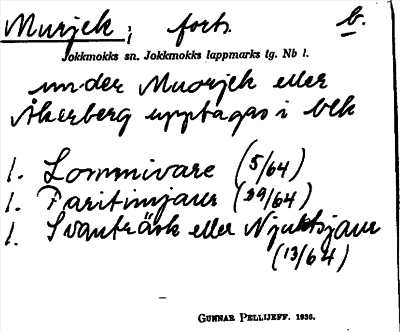 Murjek; forts. b.
Jokkmokks sn. Jokkmokks lappmarks tg. Nb l.
under Muorjek eller
Åkerberg upptagas i blk
l. Lommivare (5/64)
l. Paritimjaur (29/64)
l. Svanträsk eller Njuktsjaur
(13/64)
GUNNAR PELLIJEFF. 1936.